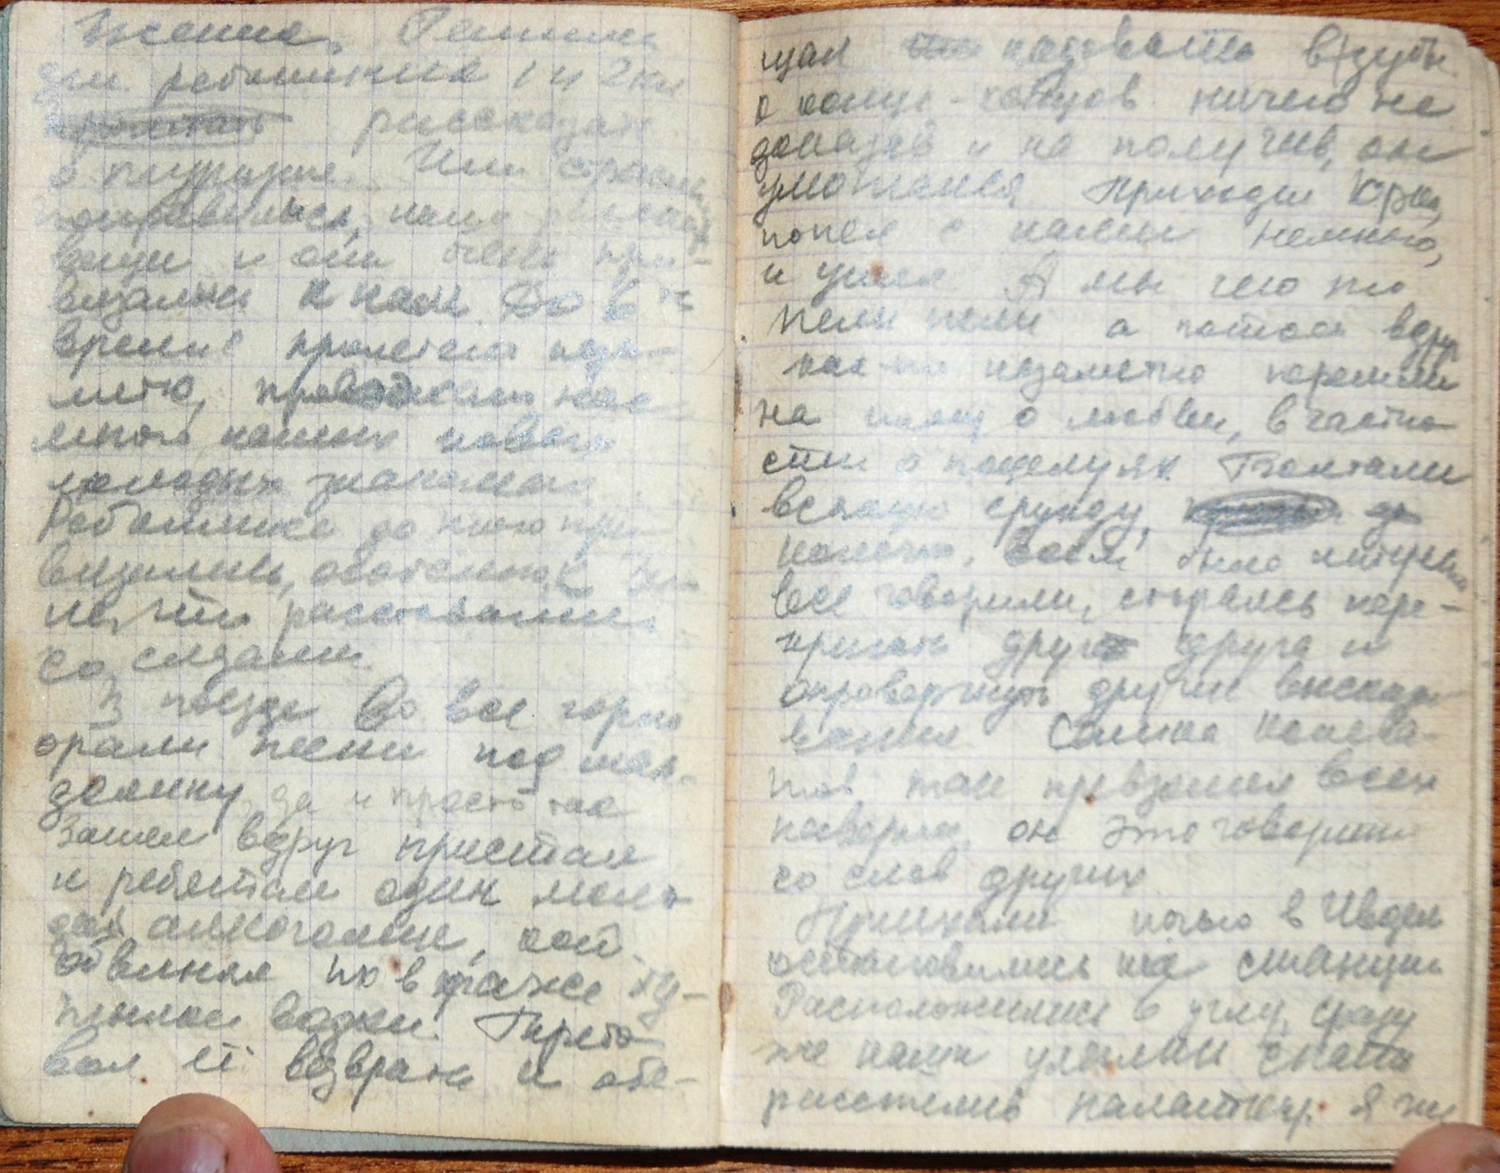 жения. Решили
для ребятишек 1 и 2 кл
рассказать
о туризме. Им страшно
понравились наши рассказы
вещи и они очень при-
вязались к нам До 6 ч
время пролетело неза-
метно, провожали нас
много наших новых
молодых знакомых
Ребятишки до того при-
вязались, особенно к Зи-
не, что расставались
со слезами.
В поезде во все горло
орали песни под ман-
долину, да и просто так
Затем вдруг пристал
к ребятам один моло-
дой алкоголик,
обвинял их в краже бу-
тылки водки. Требо-
вал её возврата и обе-
щал надавать в зубы.
В конце-концов ничего не
доказав и не получив, он
умотался Приходил Юрка,
попел с нами немного,
и ушел А мы чего то
пели пели а потом вдруг
как-то незаметно перешли
на тему о любви, в частно-
сти о поцелуях Болтали
всякую ерунду,
конечно, всем было интересно
все говорили, стараясь пере-
кричать друг друга и
опровергнуть другие высказы-
вания Сашка Колева-
тов там превзошел всех
наверно он это говорит
со слов других
Приехали ночью в Ивдель
остановились на станции
Расположились в углу, сразу
же наши улеглись спать
расстелив палатку. Я же